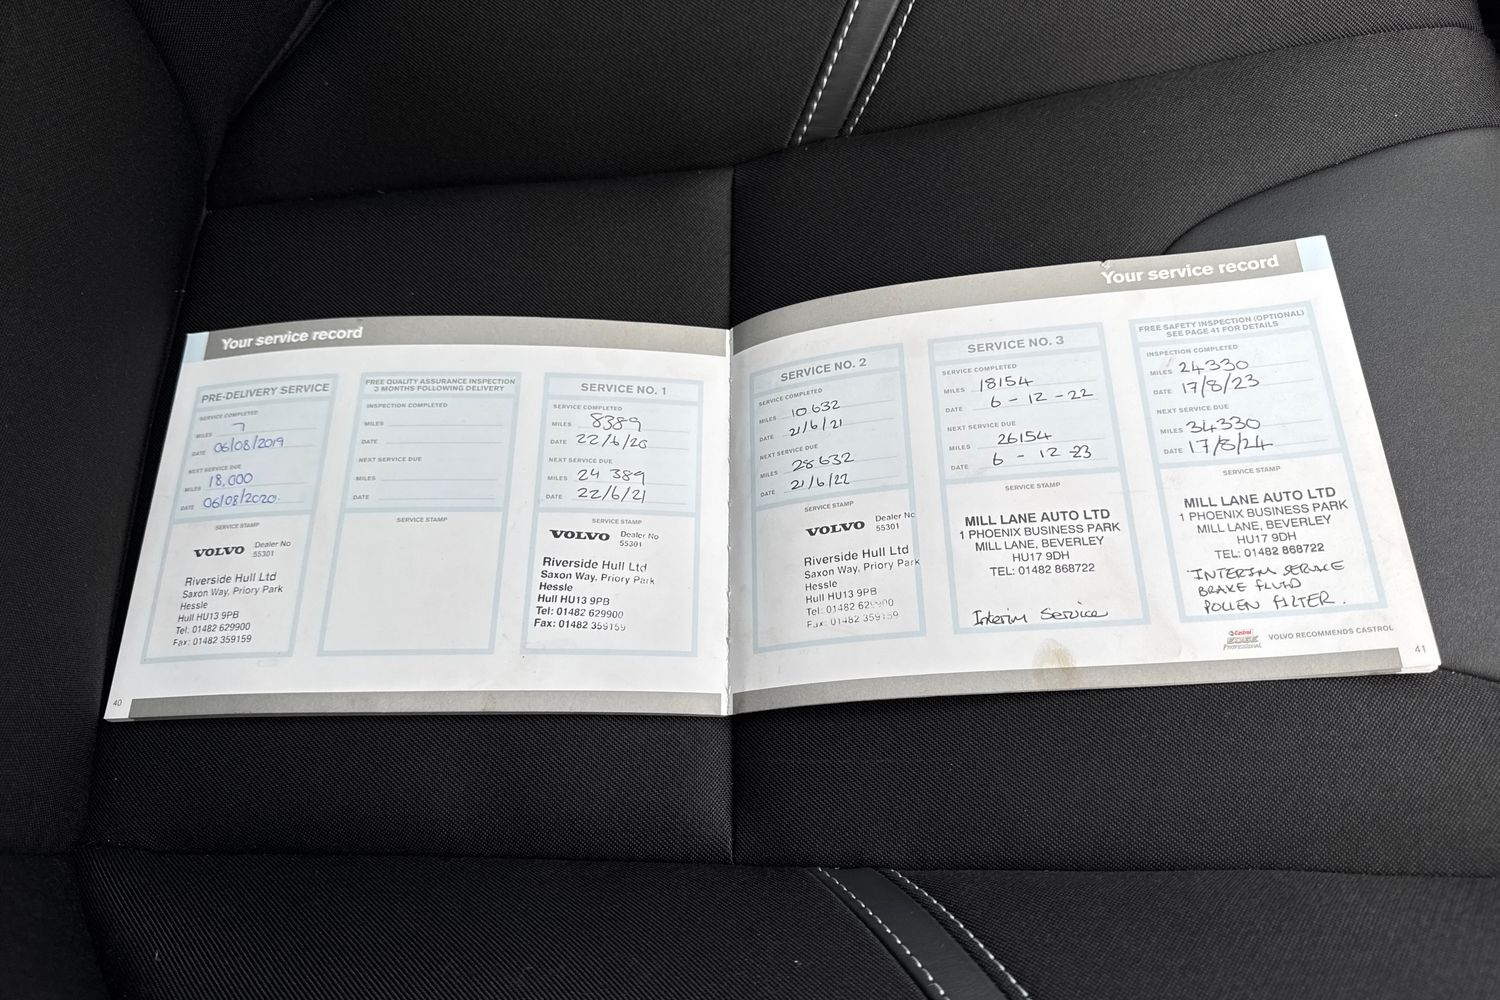 Your service record
PRE-DELIVERY SERVICE
SERVICE COMPLETED
MILES 7
DATE 06/08/2019
NEXT SERVICE DUE
MILES 18,000
DATE 06/08/2020
SERVICE STAMP
VOLVO Dealer No
55301
Riverside Hull Ltd
Saxon Way, Priory Park
Hessle
Hull HU13 9PB
Tel: 01482 629900
Fax: 01482 359159
FREE QUALITY ASSURANCE INSPECTION
3 MONTHS FOLLOWING DELIVERY
INSPECTION COMPLETED
MILES
DATE
NEXT SERVICE DUE
MILES
DATE
SERVICE STAMP
SERVICE NO. 1
SERVICE COMPLETED
MILES 8389
DATE 22/6/20
NEXT SERVICE DUE
MILES 24 389
DATE 22/6/21
SERVICE STAMP
VOLVO Dealer No
55301
Riverside Hull Ltd
Saxon Way, Priory Park
Hessle
Hull HU13 9PB
Tel: 01482 629900
Fax: 01482 359159
40
Your service record
SERVICE NO. 2
SERVICE COMPLETED
MILES 10 632
DATE 21/6/21
NEXT SERVICE DUE
MILES 28 632
DATE 21/6/22
SERVICE STAMP
VOLVO Dealer No
55301
Riverside Hull Ltd
Saxon Way, Priory Park
Hessle
Hull HU13 9PB
Tel: 01482 629900
Fax: 01482 359159
SERVICE NO. 3
SERVICE COMPLETED
MILES 18154
DATE 6 - 12 - 22
NEXT SERVICE DUE
MILES 26154
DATE 6 - 12 - 23
SERVICE STAMP
MILL LANE AUTO LTD
1 PHOENIX BUSINESS PARK
MILL LANE, BEVERLEY
HU17 9DH
TEL: 01482 868722
Interim Service
FREE SAFETY INSPECTION (OPTIONAL)
SEE PAGE 41 FOR DETAILS
INSPECTION COMPLETED
MILES 24330
DATE 17/8/23
NEXT SERVICE DUE
MILES 34330
DATE 17/8/24
SERVICE STAMP
MILL LANE AUTO LTD
1 PHOENIX BUSINESS PARK
MILL LANE, BEVERLEY
HU17 9DH
TEL: 01482 868722
INTERIM SERVICE
BRAKE FLUID
POLLEN FILTER.
Castrol
EDGE
PROFESSIONAL
VOLVO RECOMMENDS CASTROL
41